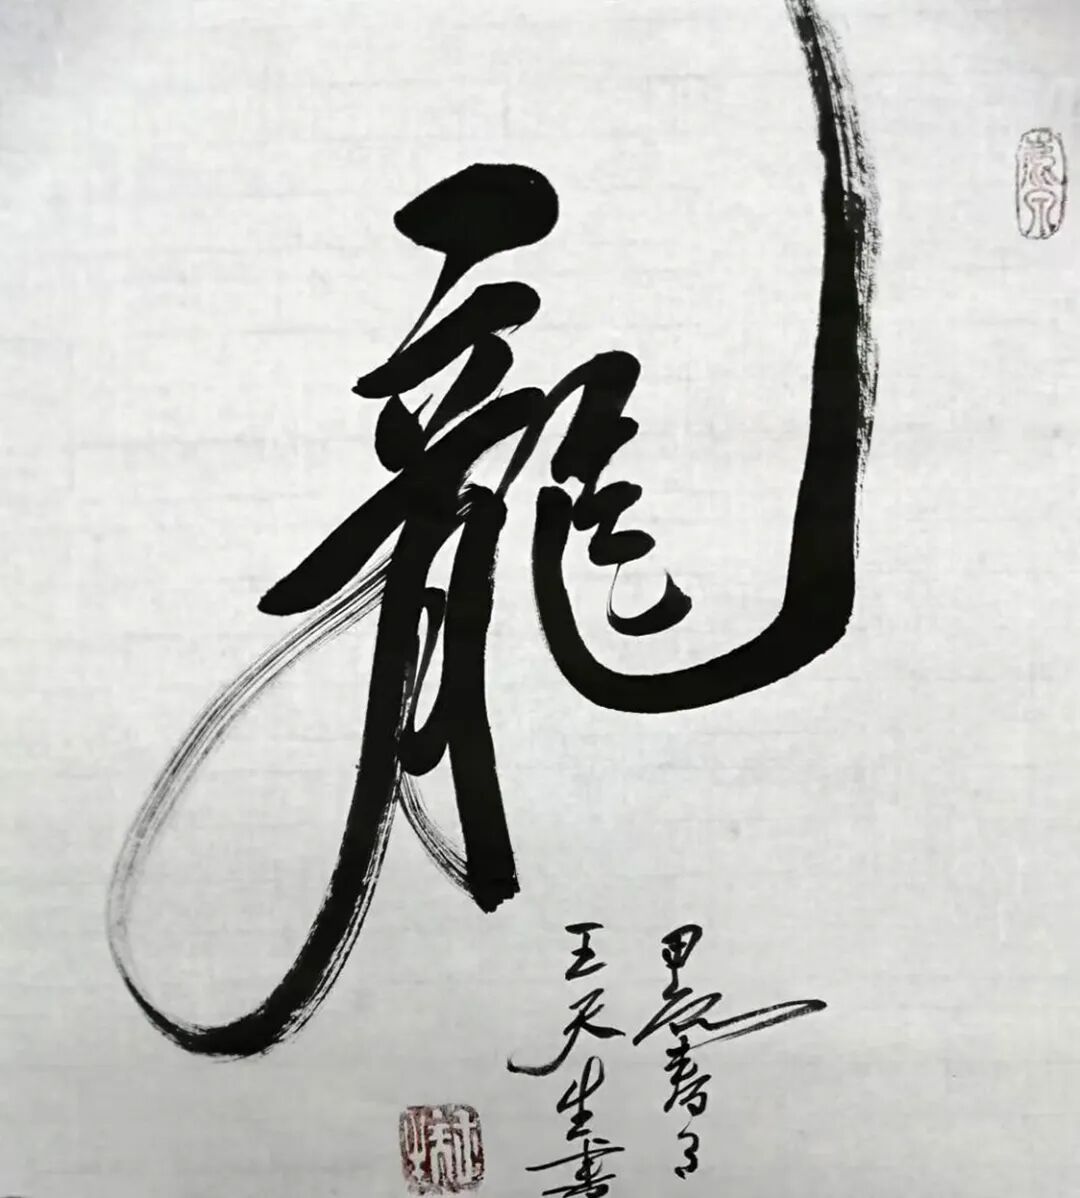 龍
甲辰春月
王天生書